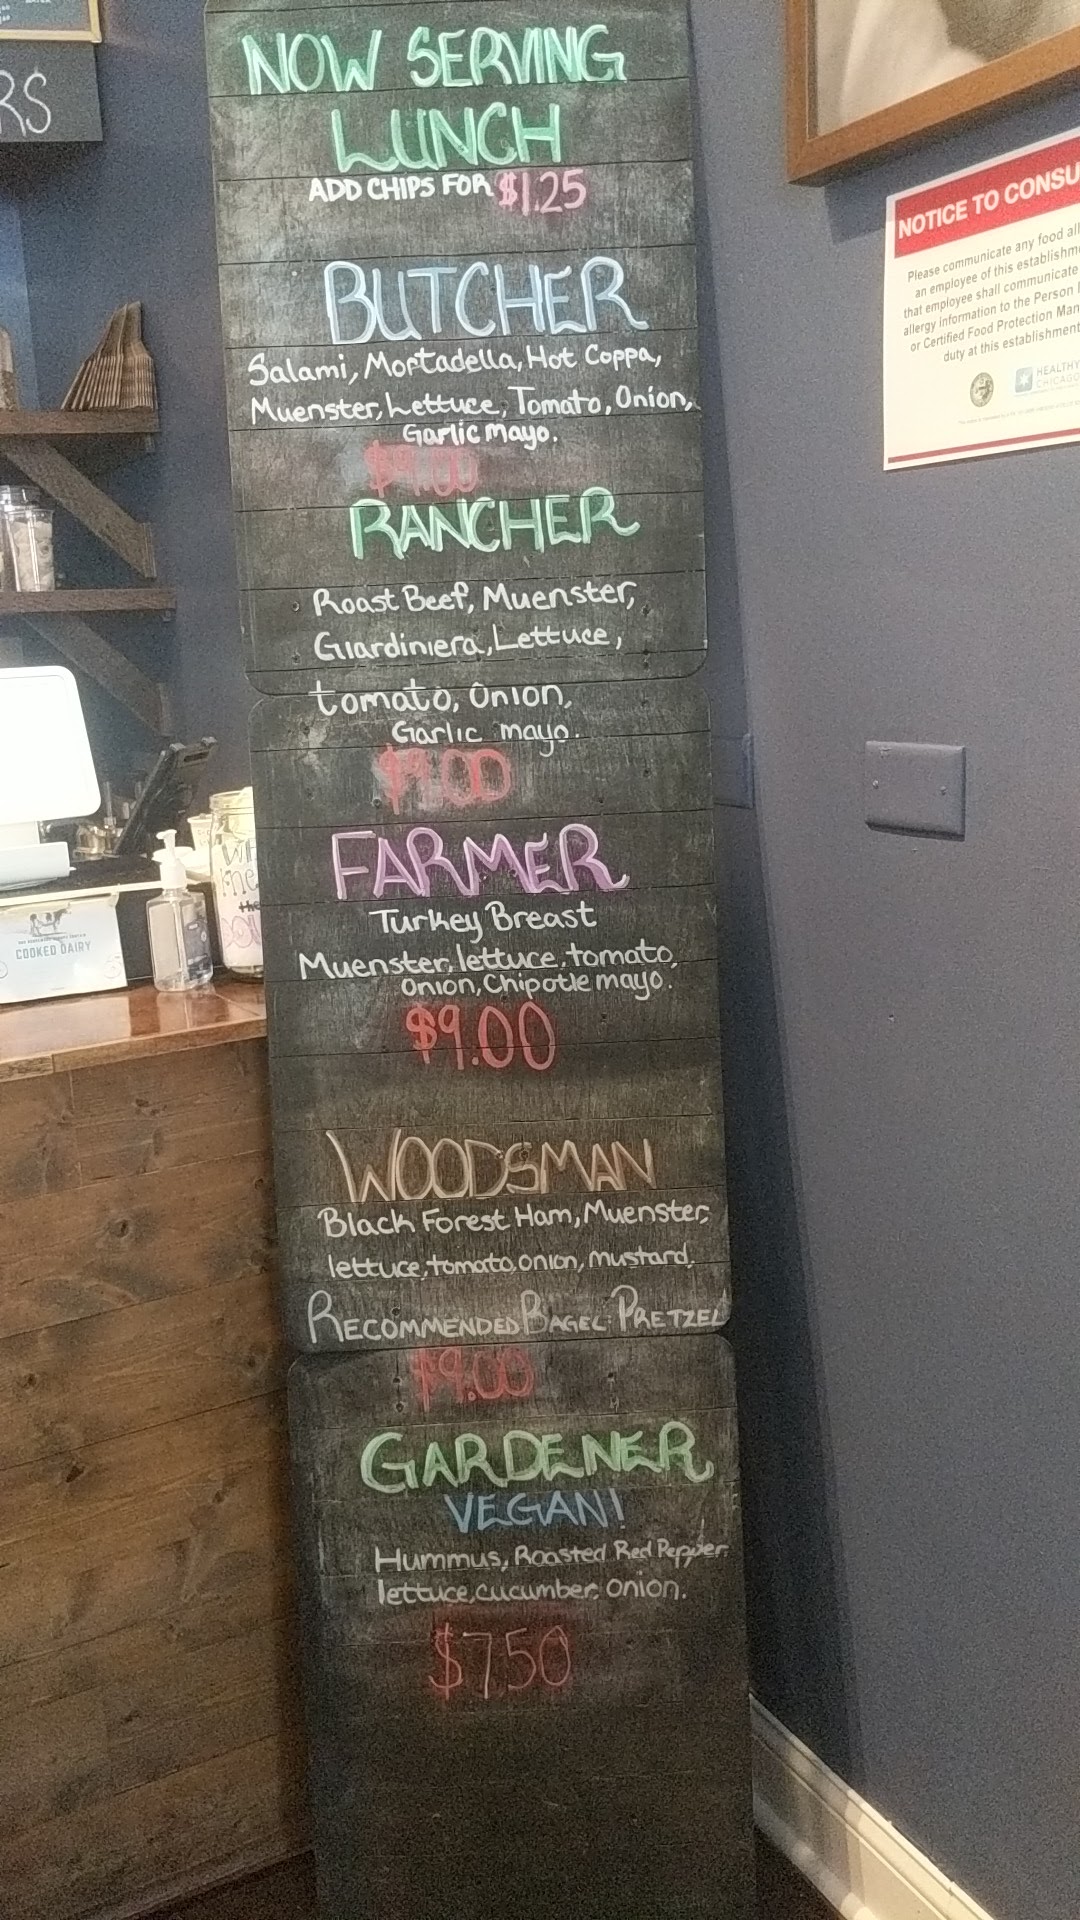 RS
NOW SERVING
LUNCH
ADD CHIPS FOR $1.25
BUTCHER
Salami, Mortadella, Hot Coppa,
Muenster, Lettuce, Tomato, Onion,
Garlic mayo.
$9.00
RANCHER
Roast Beef, Muenster,
Giardiniera, Lettuce,
tomato, Onion,
Garlic mayo.
$9.00
FARMER
Turkey Breast
Muenster, lettuce, tomato,
onion, Chipotle mayo.
$9.00
WOODSMAN
Black Forest Ham, Muenster,
lettuce, tomato, onion, mustard,
RECOMMENDED BAGEL: PRETZEL
$9.00
GARDENER
VEGAN!
Hummus, Roasted Red Pepper,
lettuce, cucumber, onion.
$7.50
NOTICE TO CONSU
Please communicate any food all
an employee of this establishm
that employee shall communicate
allergy information to the Person
or Certified Food Protection Man
duty at this establishment
HEALTHY
CHICAGO
COOKED DAIRY
the